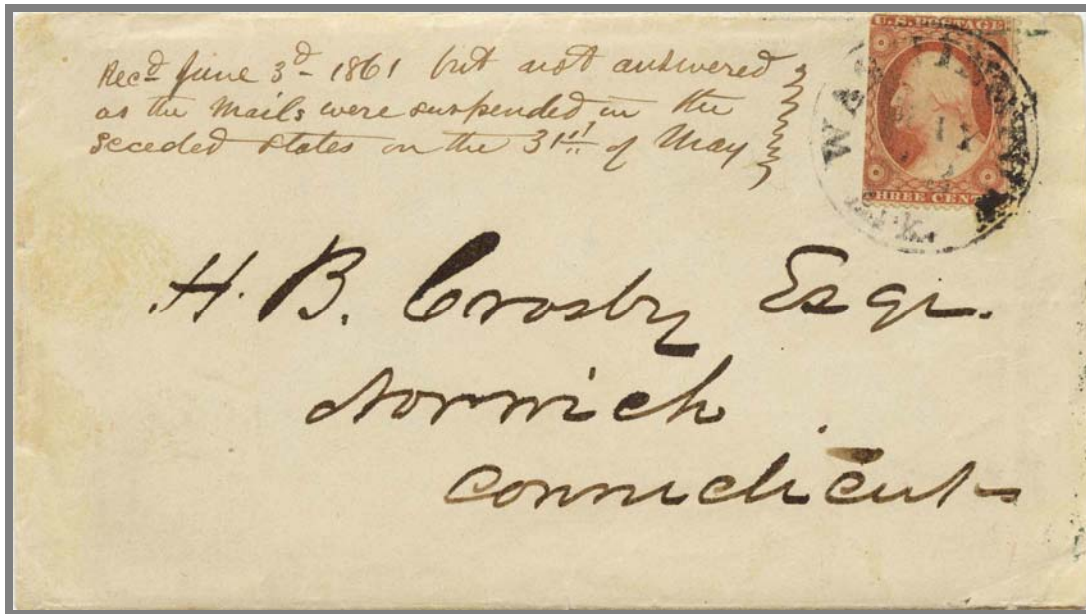 Recd June 3d - 1861 but not answered
as the Mails were suspended in the
Seceded States on the 31st of May
U.S. POSTAGE
THREE CENT
H. B. Crosby Esqr.
Norwich
Connecticut